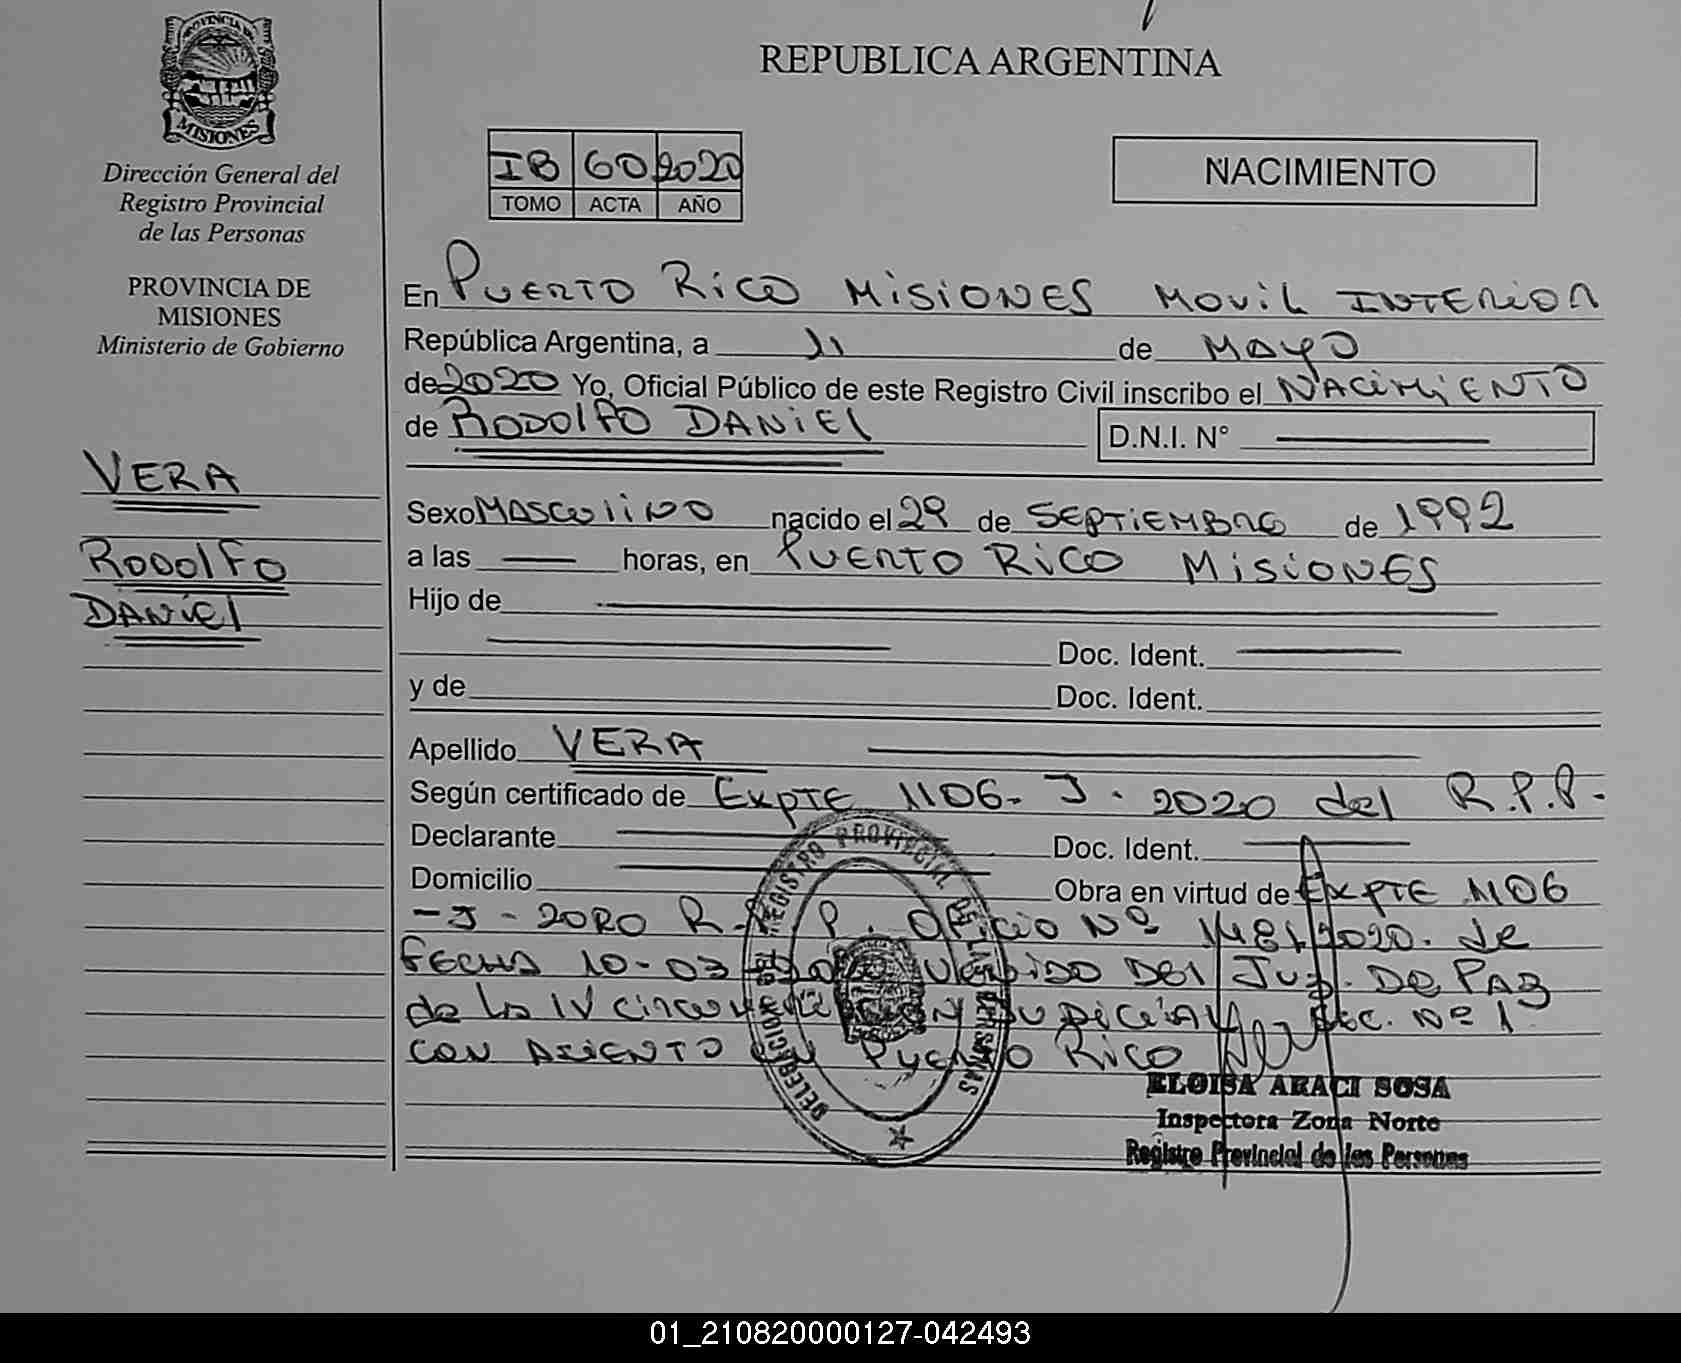 PROVINCIA DE
MISIONES
Dirección General del
Registro Provincial
de las Personas
PROVINCIA DE
MISIONES
Ministerio de Gobierno
VERA
Rodolfo
Daniel
REPUBLICA ARGENTINA
IB 60 2020
TOMO ACTA AÑO
NACIMIENTO
En Puerto Rico Misiones Movil Interior
República Argentina, a 11 de Mayo
de 2020 Yo, Oficial Público de este Registro Civil inscribo el Nacimiento
de Rodolfo Daniel D.N.I. N°
Sexo Masculino nacido el 29 de Septiembre de 1992
a las horas, en Puerto Rico Misiones
Hijo de
Doc. Ident.
y de Doc. Ident.
Apellido VERA
Según certificado de Expte 1106- J - 2020 del R.P.P.
Declarante Doc. Ident.
Domicilio Obra en virtud de Expte 1106
- J - 2020 R.P.P. Oficio Nº 1481/2020. de
Fecha 10-03 del Juz. De Paz
de la IV Circunscripcion Judicial Sec. Nº 1
con asiento en Puerto Rico
DELEGACION REGISTRO PROVINCIAL DE LAS PERSONAS
ELOISA ARACI SOSA
Inspectora Zona Norte
Registro Provincial de las Personas
01_210820000127-042493